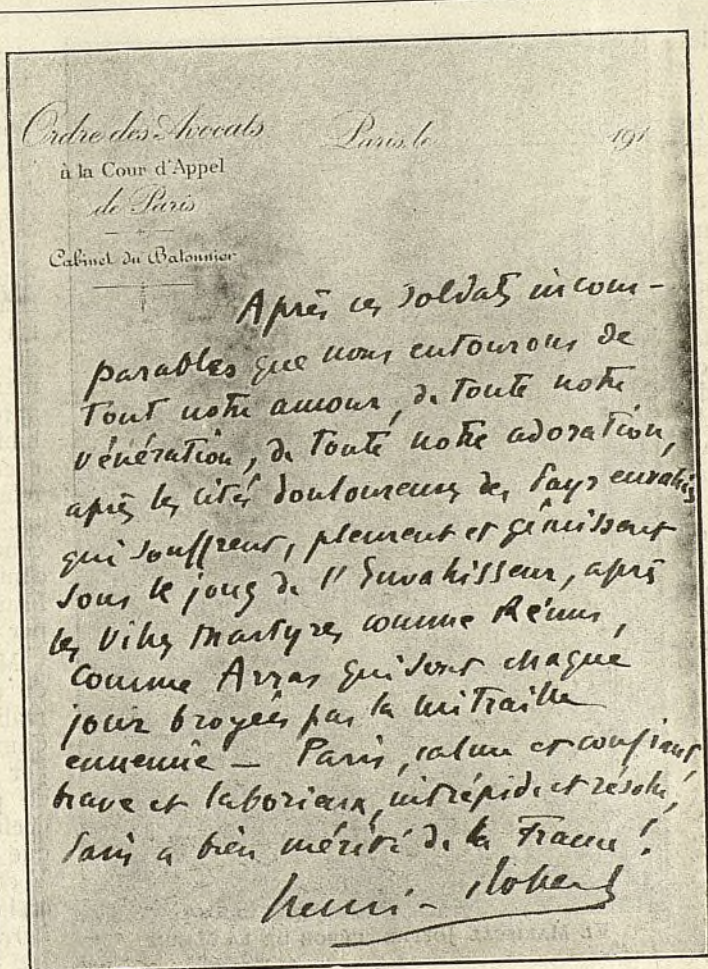 Ordre des Avocats
à la Cour d'Appel
de Paris
Cabinet du Batonnier
Paris, le 191
Après ces soldats incom-
parables que nous entourons de
tout notre amour, de toute notre
vénération, de toute notre adoration,
après les cités douloureuses des pays envahis
qui souffrent, pleurent et gémissent
sous le joug de l'Envahisseur, après
les villes martyres comme Reims,
comme Arras qui sont chaque
jour broyées par la mitraille
ennemie — Paris, calme et confiant,
brave et laborieux, intrépide et résolu,
Paris a bien mérité de la France !
Henri-Robert